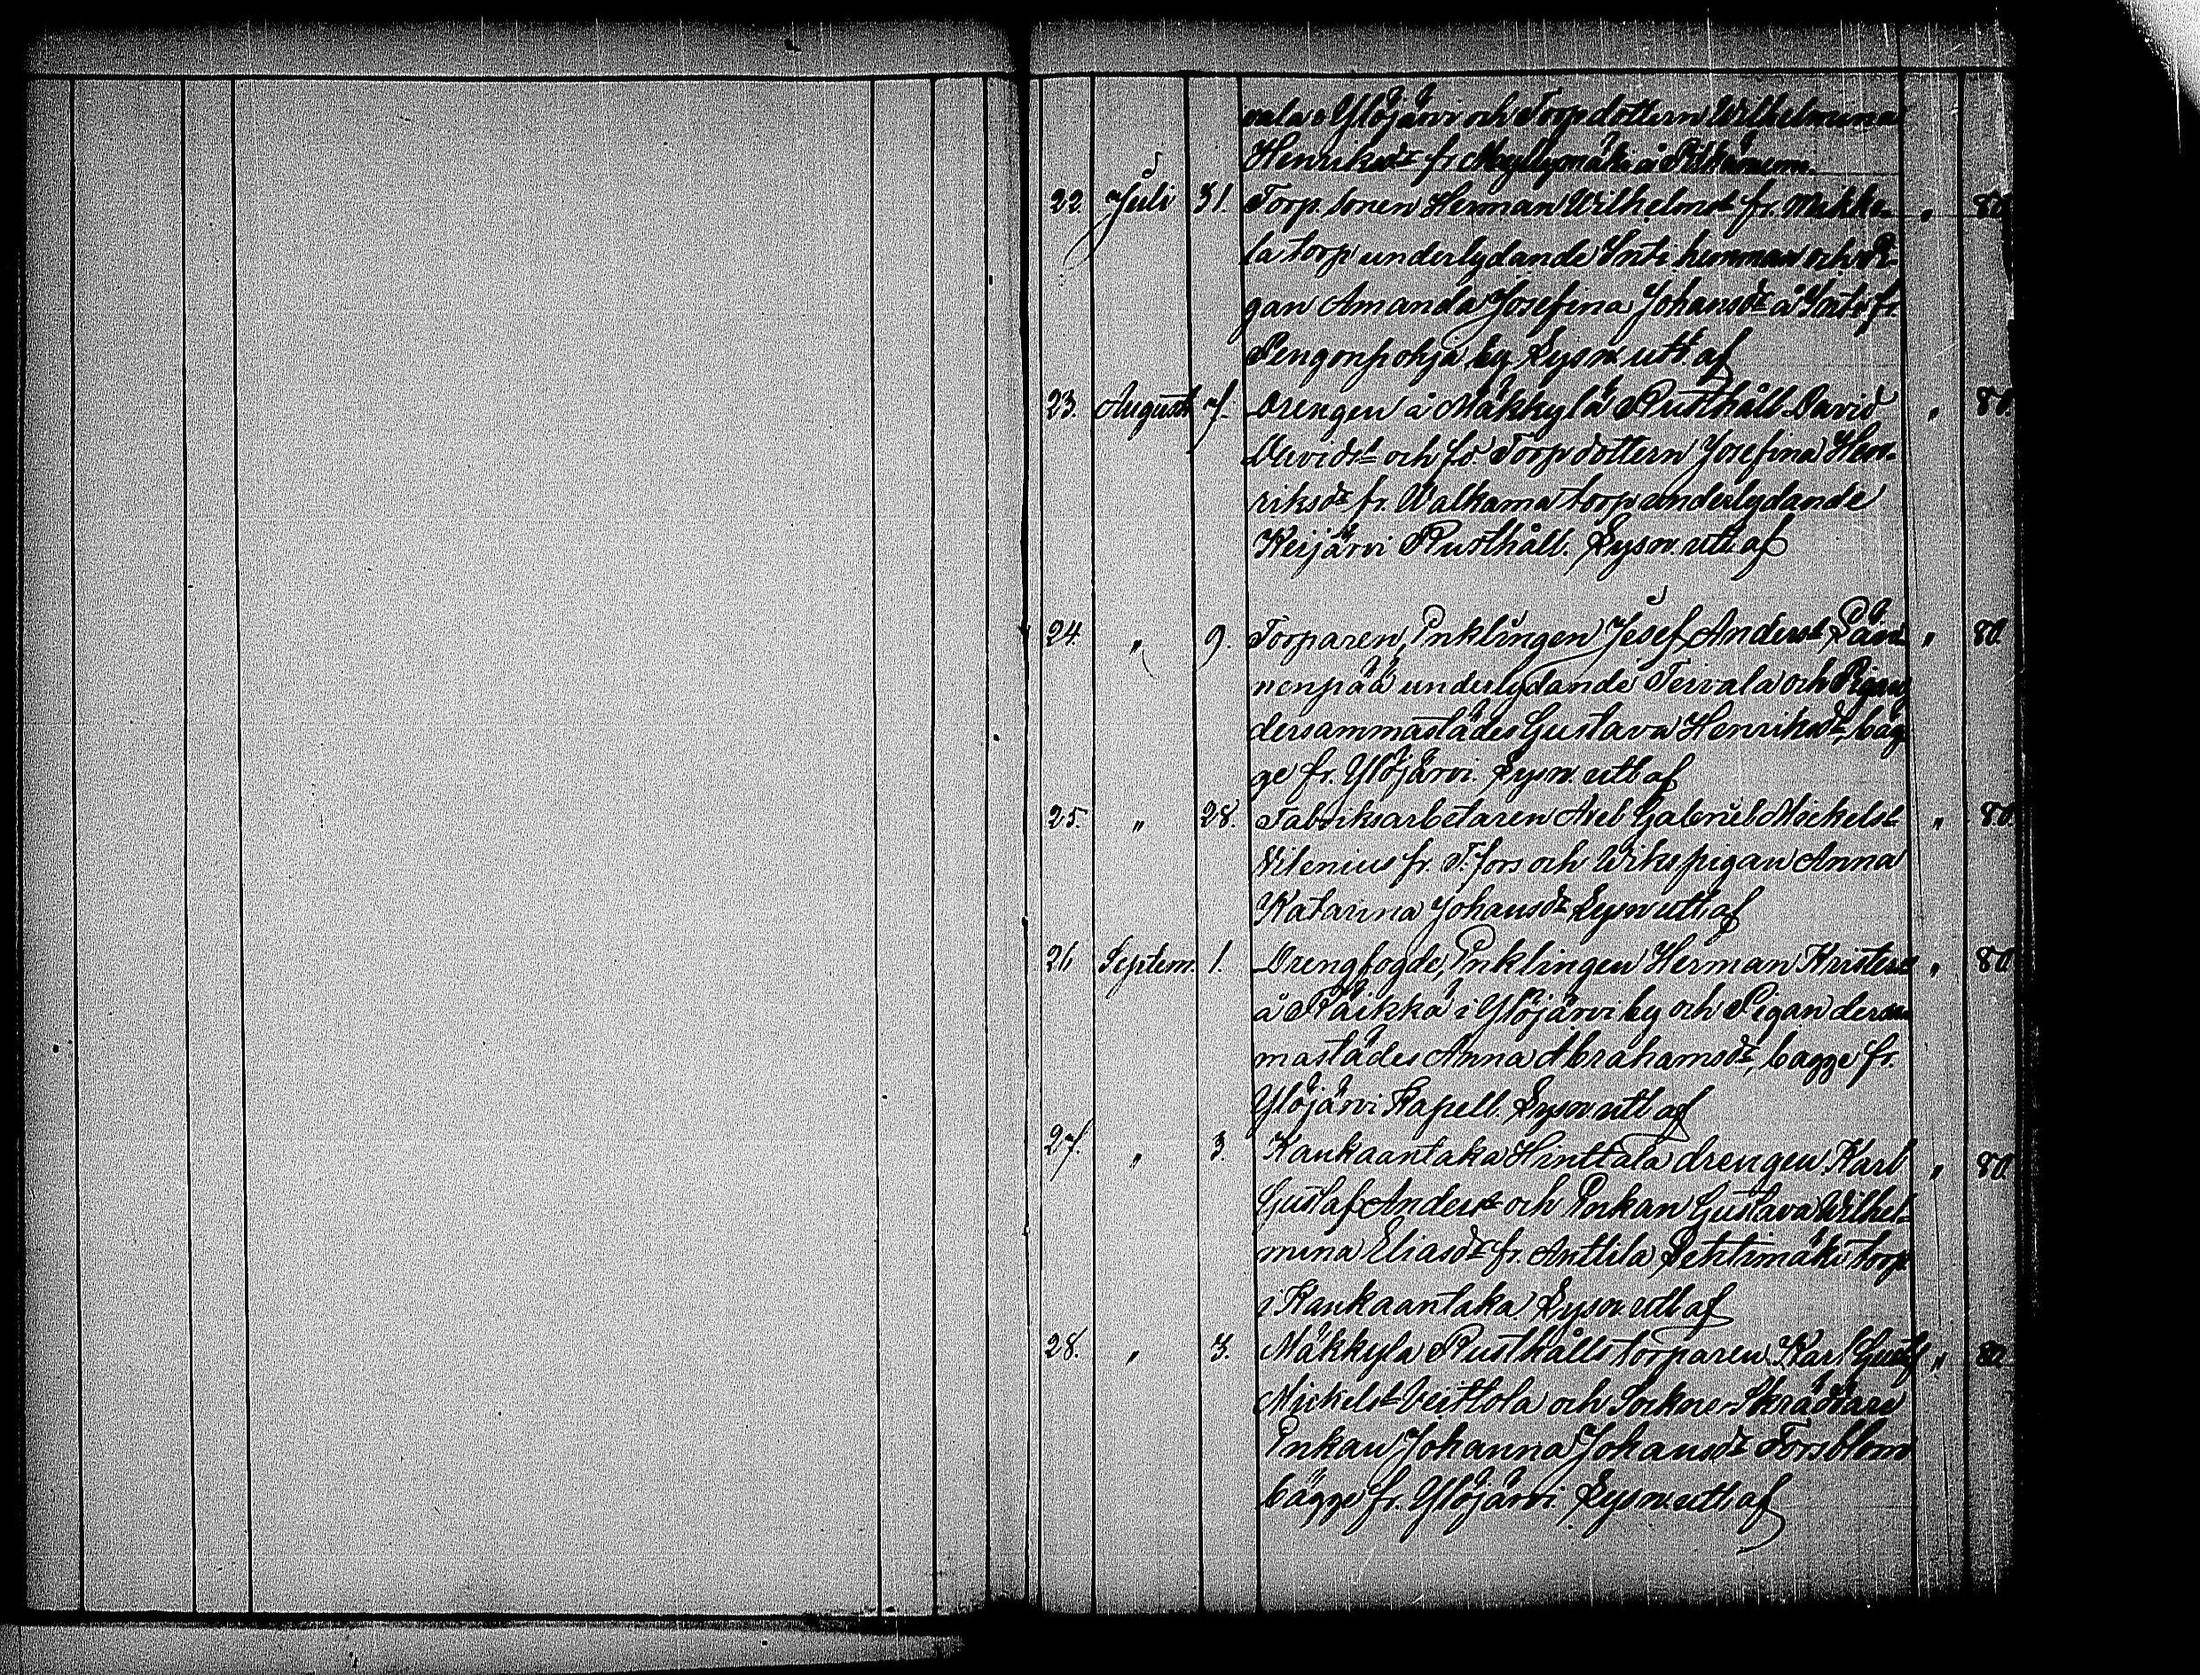 vala i Ylöjärvi och Torpdottern Wilhelmina
Henriksdr fr. Myllymäki å Pitkäniemi.
22. Juli 31. Torp. sonen Herman Wilhelmss fr. Mikko- " 80.
la torp underlydande Inti hemman och Pi-
gan Amanda Josefina Johansdr å Inti fr.
Pengonpohja by Lysn. utt. af
23. August 7. Drengen å Mäkkylä Rusthåll David " 80.
Davidss och fd. Torpdottern Josefina Hen-
riksdr fr. Walkama torp underlydande
Keijärvi Rusthåll. Lysn. utt. af
24. " 9. Torparen, Enklingen Josef Anderss " 80.
nenpää underlydande Tervala och Pigan
dersammastädes Gustava Henriksdr, båg-
ge fr. Ylöjärvi. Lysn. utt. af
25. " 28. Fabriksarbetaren Axel Gabriel Mickelss " 80.
Vilenius fr. T.fors och Wiks pigan Anna
Katarina Johansdr Lysn. utt. af
26 Septem. 1. Drengfogde, Enklingen Herman Kristerss " 80.
å Räikkä i Ylöjärvi by och Pigan dersam-
mastädes Anna Abrahamsdr, bagge fr.
Ylöjärvi Kapell. Lysn. utt. af
27. " 3. Kaukaantaka Hinttala drengen Karl " 80.
Gustaf Anderss och Enkan Gustava Wilhel-
mina Eliasdr fr. Anttila torp
i Kaukaantaka. Lysn. utt. af
28. " 3. Mäkkylä Rusthålls torparen Karl Gustaf " 80.
Mickelss Veittola och Sockne Skräddare
Enkan Johanna Johansdr Forsblom
bägge fr. Ylöjärvi. Lysn. utt. af